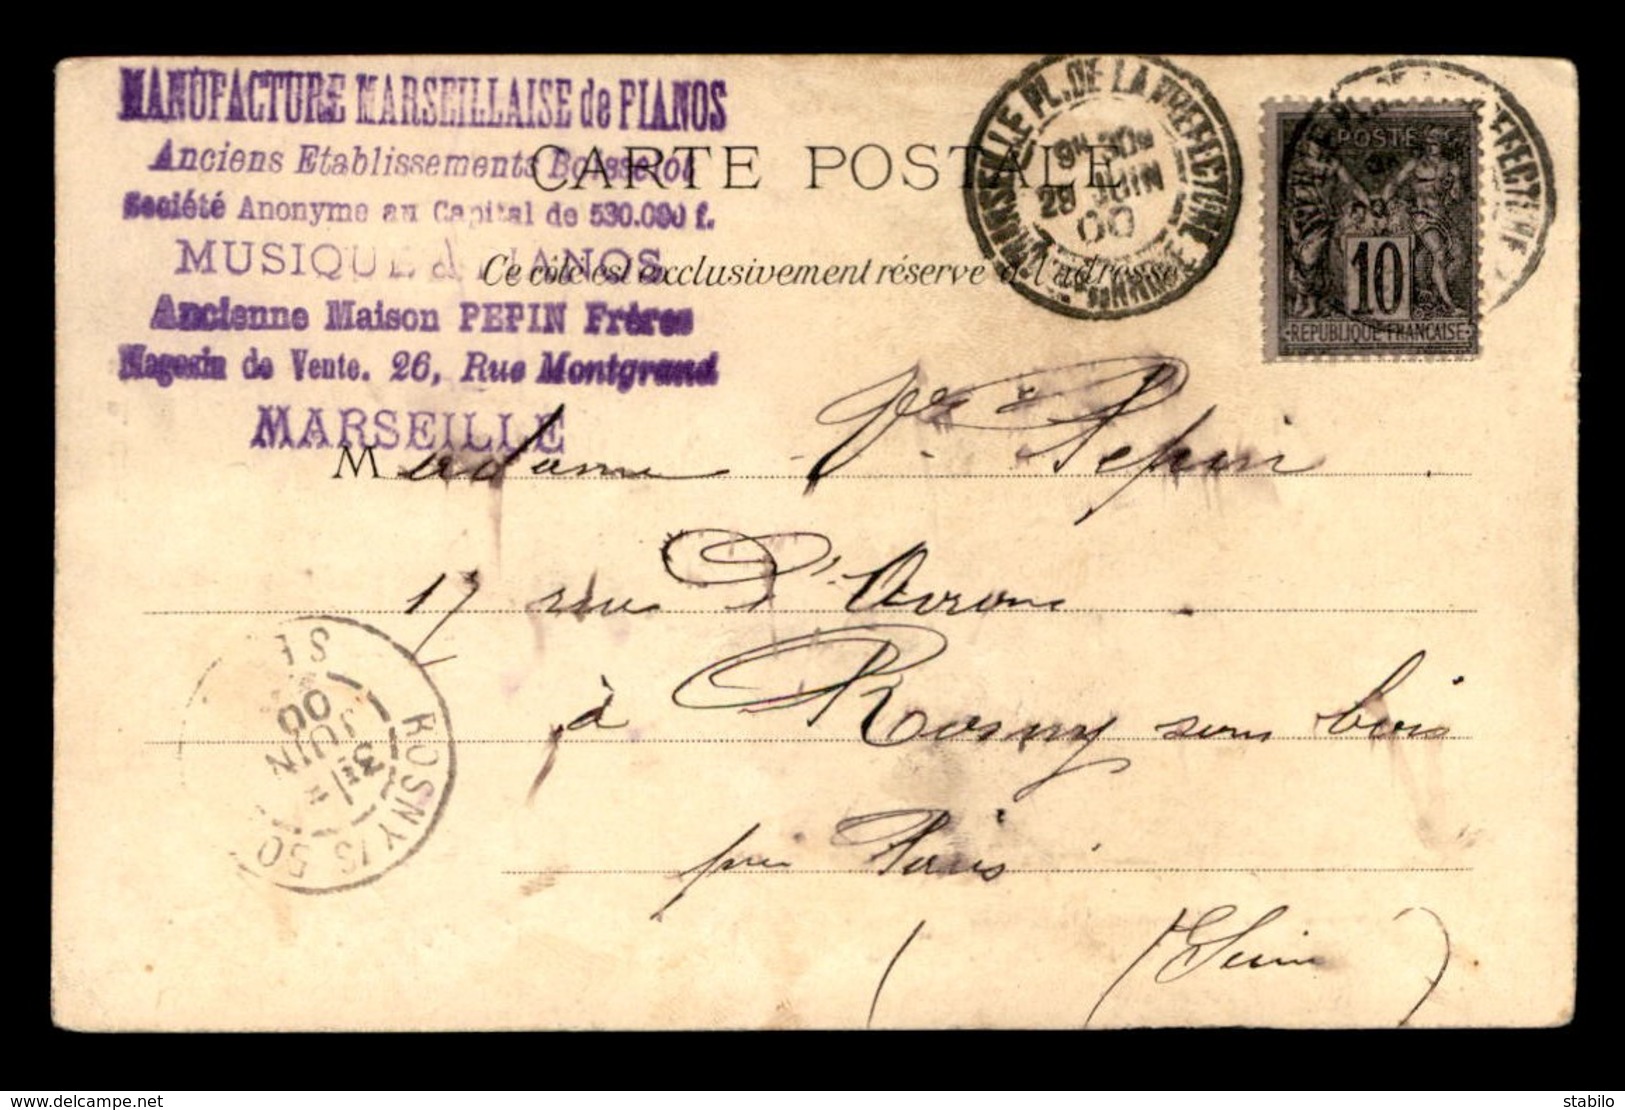 MANUFACTURE MARSEILLAISE de PIANOS
Anciens Etablissements Boisselot
Société Anonyme au Capital de 530.000 f.
MUSIQUE & PIANOS
Ancienne Maison PEPIN Frères
Magasin de Vente. 26, Rue Montgrand
MARSEILLE
CARTE POSTALE
Ce côté est exclusivement réservé à l'adresse
MARSEILLE PL. DE LA PREFECTURE
JUIN
00
POSTES
10
REPUBLIQUE FRANCAISE
Madame Ve Pepin
17 rue d'Avron
à Rosny sous bois
près Paris
(Seine)
ROSNY
JUIN
00
delcampe.net
stabilo